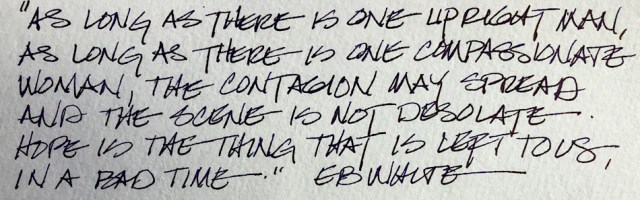 "AS LONG AS THERE IS ONE UPRIGHT MAN,
AS LONG AS THERE IS ONE COMPASSIONATE
WOMAN, THE CONTAGION MAY SPREAD
AND THE SCENE IS NOT DESOLATE.
HOPE IS THE THING THAT IS LEFT TO US,
IN A BAD TIME." EB WHITE